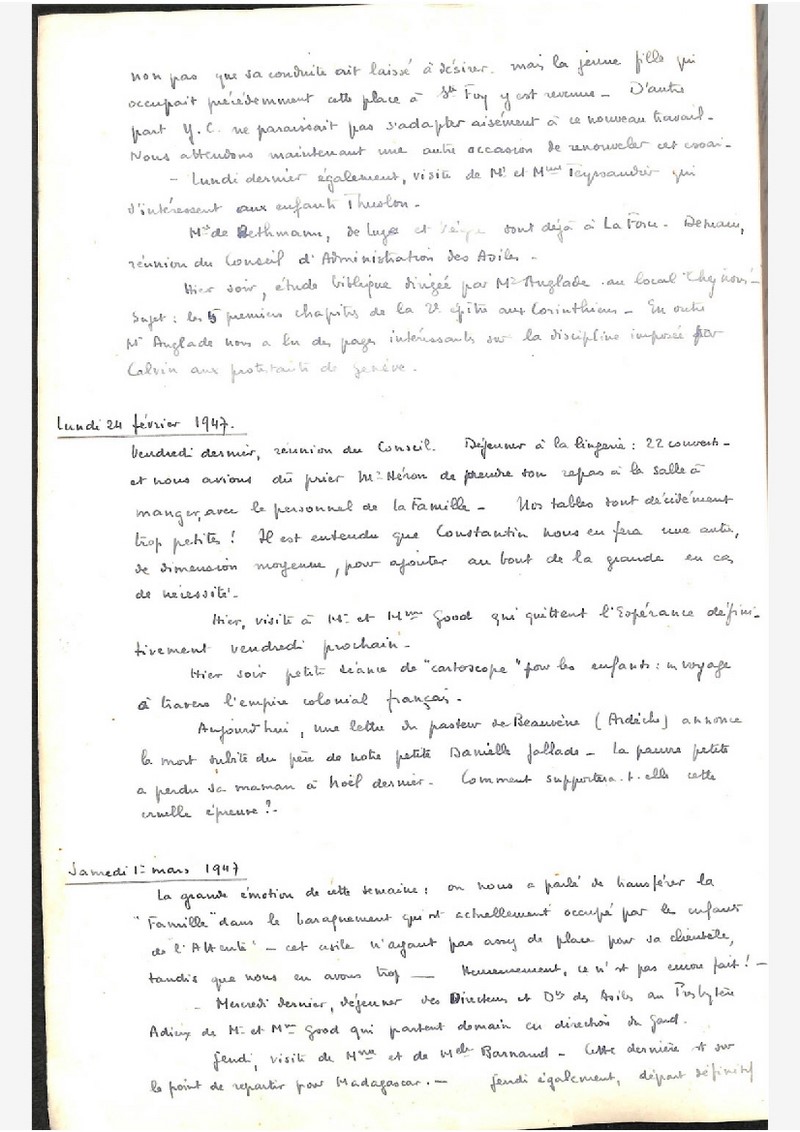 non pas que sa conduite ait laissé à désirer. mais la jeune fille qui
occupait précédemment cette place à Ste Foy y est revenue - D'autre
part Y.C. ne paraissait pas s'adapter aisément à ce nouveau travail.
Nous attendons maintenant une autre occasion de renouveler cet essai.
- Lundi dernier également, visite de Mr et Mme Teyssandier qui
s'intéressent aux enfants
Mrs de Bethmann, de Luze et sont déjà à La Force. Demain,
réunion du Conseil d'Administration des Asiles.
Hier soir, étude biblique dirigée par Mr Anglade au local "Chez nous" -
Sujet : les 5 premiers chapitres de la 2e épître aux Corinthiens - En outre
Mr Anglade nous a lu des pages intéressants sur la discipline imposée par
Calvin aux protestants de Genève.
Lundi 24 février 1947.
Vendredi dernier, réunion du Conseil. Déjeuner à la lingerie : 22 couverts -
et nous avions dû prier Mr Héron de prendre son repas à la salle à
manger, avec le personnel de la Famille - Nos tables sont décidément
trop petites ! Il est entendu que Constantin nous en fera une autre,
de dimension moyenne, pour ajouter au bout de la grande en cas
de nécessité.
Hier, visite à Mr et Mme Good qui quittent l'Espérance défini-
tivement vendredi prochain -
Hier soir petite séance de "cartoscope" pour les enfants : un voyage
à travers l'empire colonial français.
Aujourd'hui, une lettre du pasteur de Beauvène (Ardèche) annonce
la mort subite du père de notre petite Danielle - La pauvre petite
a perdu sa maman à Noël dernier. Comment supportera-t-elle cette
cruelle épreuve ? -
Samedi 1er mars 1947
La grande émotion de cette semaine : on nous a parlé de transférer la
"Famille" dans le baraquement qui est actuellement occupé par les enfants
de l'Attente - cet asile n'ayant pas assez de place pour sa clientèle,
tandis que nous en avons trop — Heureusement, ce n'est pas encore fait ! -
- Mercredi dernier, déjeuner des Directeurs et Des des Asiles au Presbytère
Adieux de Mr et Mme Good qui partent demain en direction du Gard.
Jeudi, visite de Mme et de Melle Barnaud - Cette dernière est sur
le point de repartir pour Madagascar. - Jeudi également, départ définitif